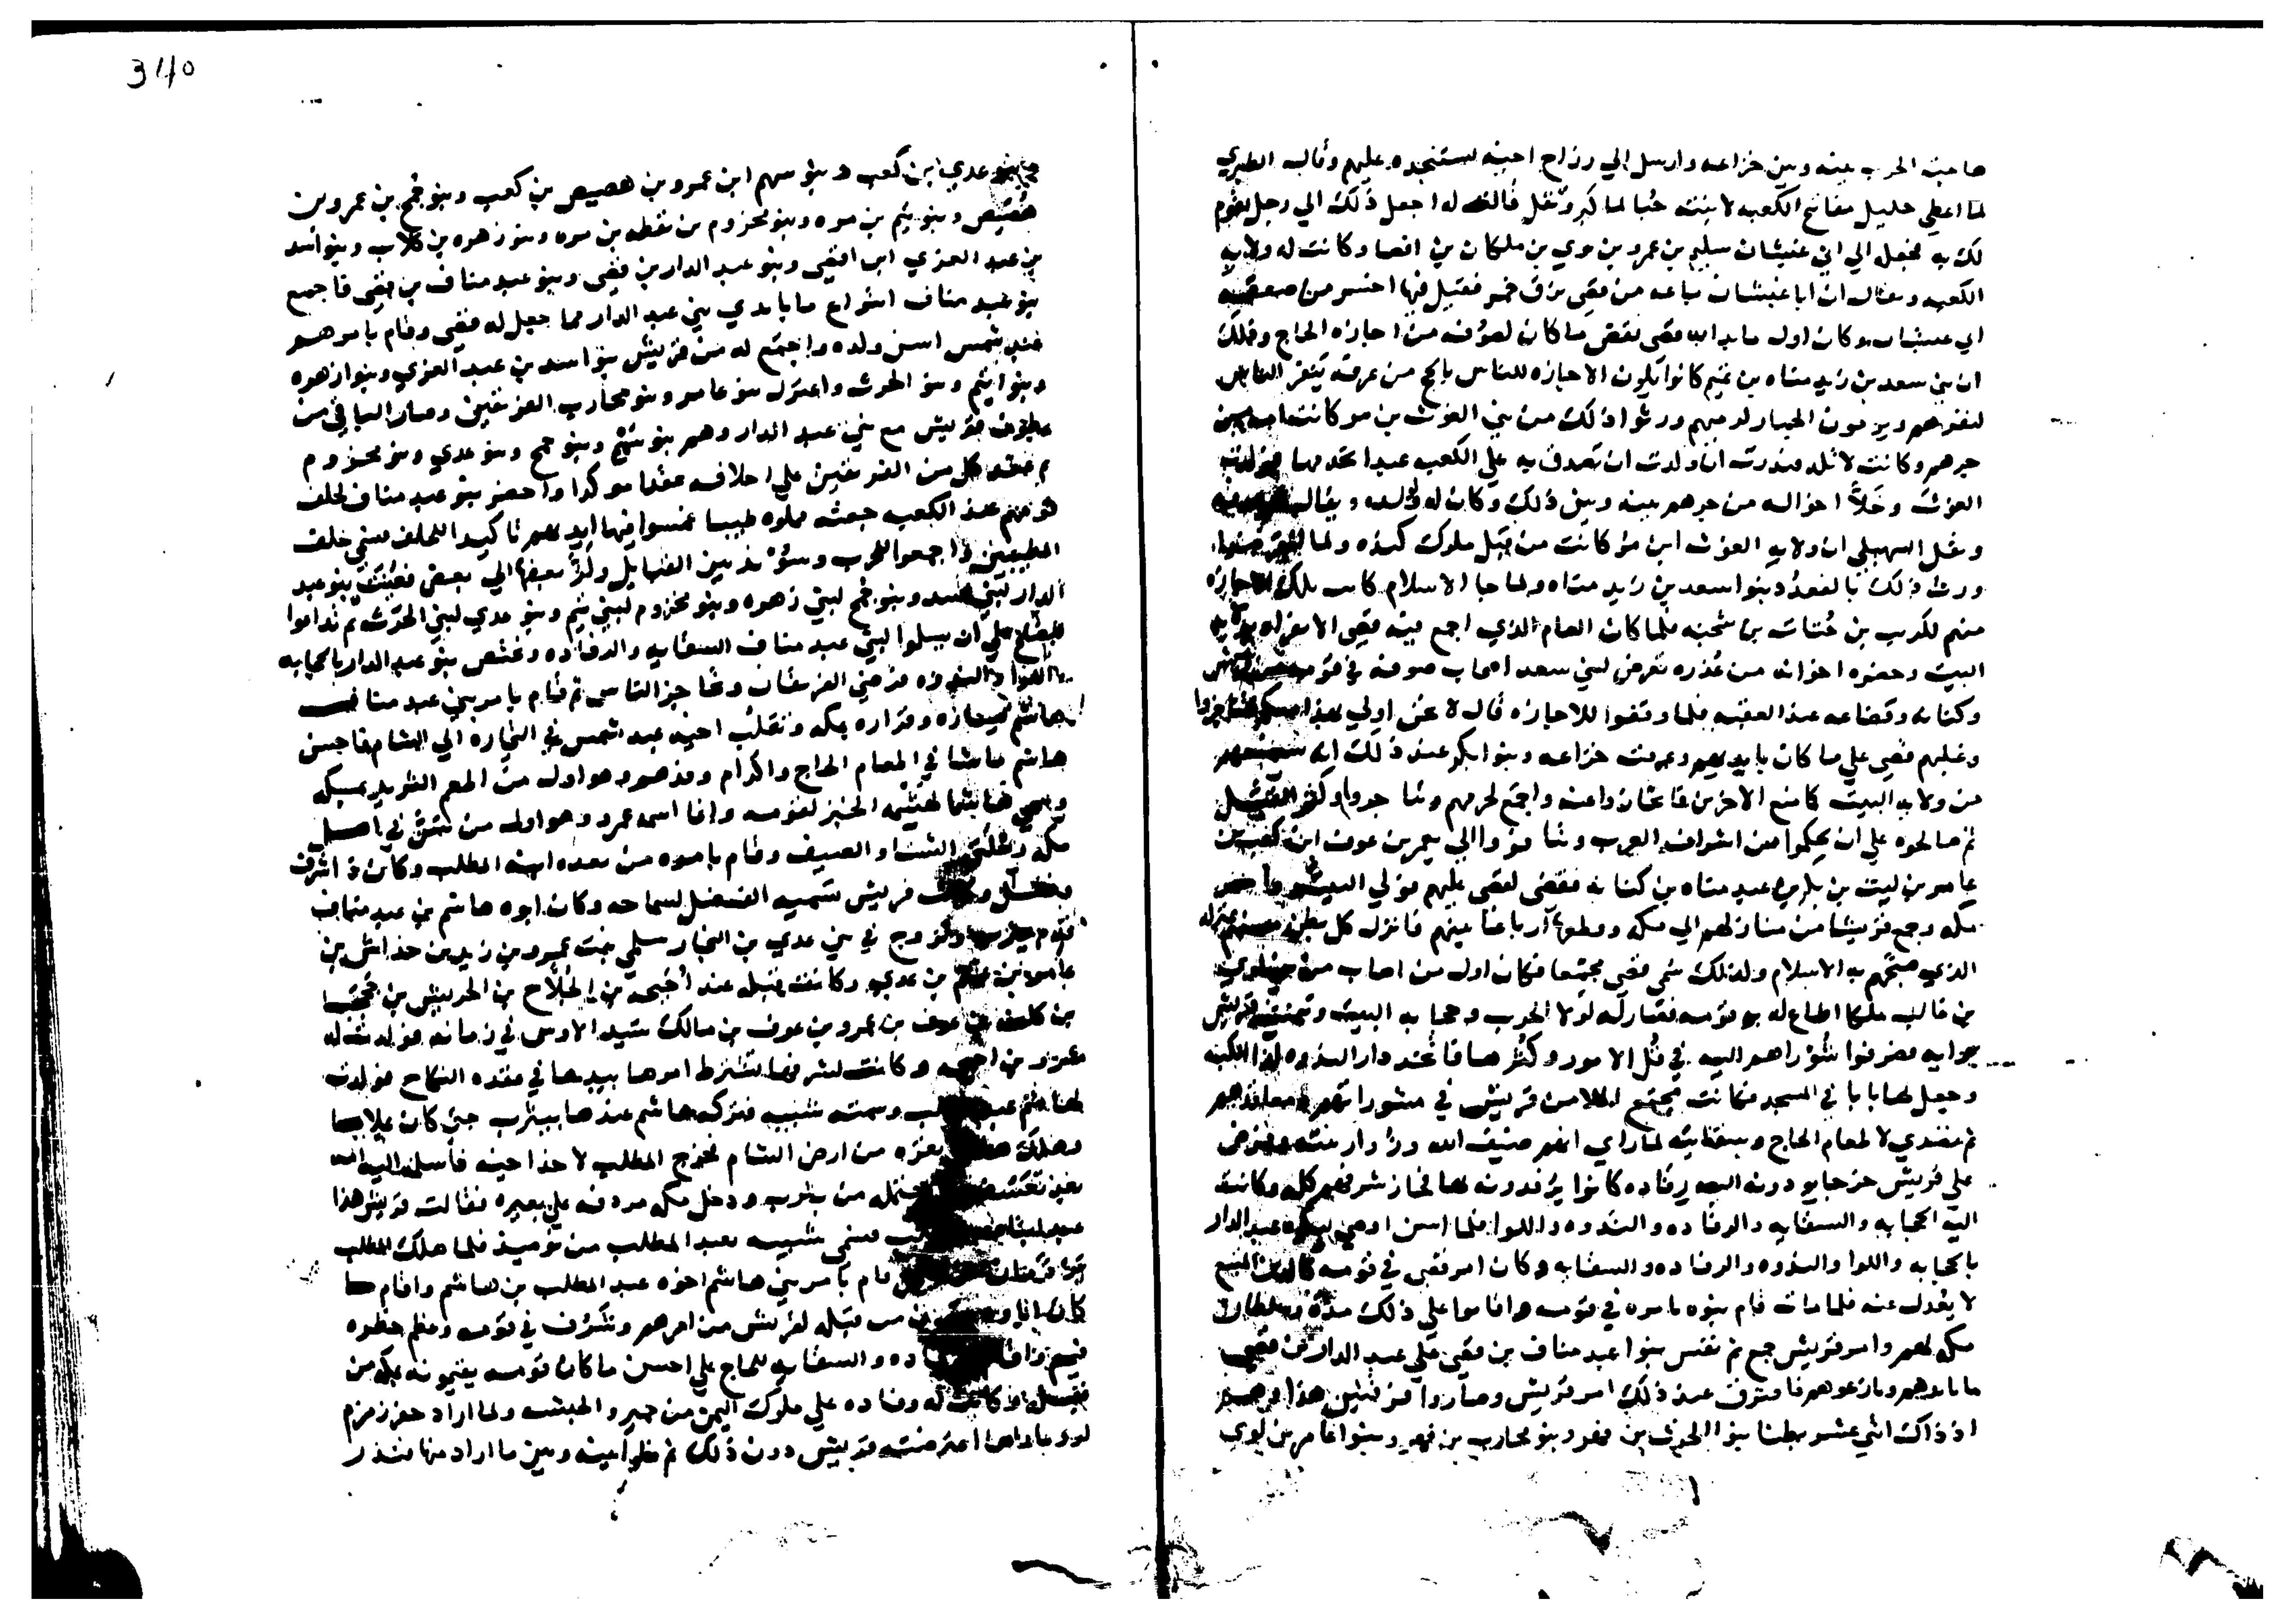 هاجت الحرب بينه وبين خزاعه وارسل الي رزاح اخيه يستنجده عليهم وقال الطبري
لما اعطي حليل مفاتيح الكعبه لابنته حُبا لما كبر وثقل قالت له اجعل ذلك الي رجل يقوم
لك به فجعل الي ابي غبشان سليم بن عمرو بن بوي بن ملكان بن افصا وكانت له ولايه
الكعبه ويقال ان ابا غبشان باعه من قصي بزق خمر فقيل فيها اخسر من صفقه
ابي غبشان وكان اول ما بدا به قصي نقض ما كان لصوفه من اجازه الحاج وذلك
ان بني سعد بن زيد مناه بن تميم كانوا يلون الاجازه للناس بالحج من عرفه ينفر الناس
لنفرهم ويرمون الجمار لرميهم ورثوا ذلك من بني الغوث بن مر وكانت امه من
جرهم وكانت لا تلد فنذرت ان ولدت ان تصدق به علي الكعبه عبدا يخدمها فولدت
الغوث وخلّا اخواله من جرهم بينه وبين ذلك وكان له ولده ويقال
ونقل السهيلي ان ولايه الغوث ابن مر كانت من قبل ملوك كنده ولما انقرضوا
ورث ذلك بالقعدد بنوا سعد بن زيد مناه ولما جا الاسلام كانت تلك الاجازه
منهم لكرب بن صفوان بن شجنه فلما كان العام الذي اجمع فيه قصي الانفراد بولايه
البيت وحضره اخوانه من عُذره تعرض لبني سعد اصحاب صوفه في قومه من قريش
وكنانه وقضاعه عند العقبه فلما وقفوا للاجازه قال لا نحن اولي بهذا منكم فتناجزوا
وغلبهم قصي علي ما كان بايديهم وعرفت خزاعه وبنوا بكر عند ذلك انه سيمنعهم
من ولايه البيت كما منع الاخرين فانحازوا عنه واجمع لحربهم وتناجزوا وكثر القتل
ثم صالحوه علي ان يحكموا من اشراف العرب وتنافروا الي يعمر بن عوف ابن كعب بن
عامر بن ليث بن بكر بن عبد مناه بن كنانه فقضي لقصي عليهم فولي البيت
مكه وجمع قريشا من منازلهم الي مكه وقطعها ارباعا بينهم فانزل كل بطن منهم بمنزله
الذي صبحهم به الاسلام ولذلك سمي قصي مجمعا فكان اول من اصاب من بني لوي
بن غالب ملكا اطاع له به قومه فصار له لوا الحرب وحجابه البيت وتيمنت قريش
برايه فصرفوا شوراهم اليه في قل الامور وكثرها فاتخذ دار الندوه ازا الكعبه
وجعل لها بابا في المسجد فكانت مجتمع الملا من قريش في مشوراتهم ومعاقدهم
ثم تصدي لاطعام الحاج وسقايته لما راي انهم ضيف الله وزوار بيته وفرض
علي قريش خرجا يودونه اليه رفاده كانوا يرفدونه بها فحاز شرفهم كله وكانت
اليه الحجابه والسقايه والرفاده والندوه واللوا فلما اسن اوصي لبكره عبد الدار
بالحجابه واللوا والندوه والرفاده والسقايه وكان امر قصي في قومه كالدين المتبع
لا يعدل عنه فلما مات قام بنوه بامره في قومه واقاموا علي ذلك مدة وسلطان
مكه لهم وامر قريش جمع ثم نفس بنوا عبد مناف بن قصي علي عبد الدار بن قصي
ما بايديهم ونازعوهم فافترق عند ذلك امر قريش وصاروا فرقتين هذا وهم
اذ ذاك اثني عشر بطنا بنوا الحرث بن فهر وبنو محارب بن فهر وبنوا عامر بن لوي
وبنو عدي ابن كعب وبنو سهم ابن عمرو بن هصيص بن كعب وبنو جمح بن عمرو بن
هصيص وبنو تيم بن مره وبنو مخزوم بن يقظه بن مره وبنو زهره بن كلاب وبنو اسد
بن عبد العزي ابن اقصي وبنو عبد الدار بن قصي وبنو عبد مناف بن قصي فاجمع
بنو عبد مناف انتزاع ما بايدي بني عبد الدار مما جعل له قصي وقام بامرهم
عبد شمس اسن ولده واجتمع له من قريش بنو اسد بن عبد العزي وبنوا زهره
وبنوا تيم وبنو الحرث واعتزل بنو عامر وبنو محارب الفريقين وصار الباقي من
بطون قريش مع بني عبد الدار وهم بنو سهم وبنو جمح وبنو عدي وبنو مخزوم
ثم عقد كل من الفريقين علي احلافه عقدا موكدا واحضر بنو عبد مناف لحلف
قومهم عند الكعبه جفنه مملوه طيبا غمسوا فيها ايديهم تاكيدا للحلف فسمي حلف
المطيبين واجمعوا للحرب وسوند بين القبايل ولزّ بعضها الي بعض فعبّت بنو عبد
الدار لبني اسد وبنو جمح لبني زهره وبنو مخزوم لبني تيم وبنو عدي لبني الحرث ثم تداعوا
للصلح علي ان يسلموا لبني عبد مناف السقايه والرفاده وتختص بنو عبد الدار بالحجابه
واللوا والندوه فرضي الفريقان وتحاجز الناس ثم قام بامر بني عبد مناف
هاشم ليساره وقراره بمكه وتقلب اخيه عبد شمس في التجاره الي الشام فاحسن
هاشم ما شا في اطعام الحاج واكرام وفدهم وهو اول من اطعم الثريد بمكه
وسمي هاشما لهشمه الخبز لقومه وانما اسمه عمرو وهو اول من سن لاهل
مكه رحلتي الشتا والصيف وقام بامره من بعده ابنه المطلب وكان ذا شرف
وفضل وكانت قريش تسميه الفضل لسماحه وكان ابوه هاشم بن عبد مناف
قدم يثرب وتزوج في بني عدي بن النجار سلمي بنت عمرو بن زيد بن خداش بن
عامر بن غنم بن عدي وكانت قبله عند أحيحه بن الجلاح بن الحريش بن جحجبا
بن كلفه بن عوف بن عمرو بن عوف بن مالك سيد الاوس في زمانه فولدت له
عمرو بن احيحه وكانت لشرفها تشترط امرها بيدها في عقده النكاح فولدت
لهاشم عبد المطلب وسمته شيبه فتركه هاشم عندها بيثرب حتي كان غلاما
وهلك هاشم بغزه من ارض الشام فخرج المطلب لاخذ اخيه فاسلمته اليه امه
بعد تعسف واحتمله من يثرب ودخل مكه مردفه علي بعيره فقالت قريش هذا
عبد ابتاعه المطلب فسمي شيبه بعبد المطلب من يوميذ فلما هلك المطلب
قام بامر بني هاشم اخوه عبد المطلب بن هاشم واقام ما
كان اباوه من قبله لقريش من امرهم وشرف في قومه وعظم خطره
فيهم واقام الرفاده والسقايه للحاج علي احسن ما كان قومه يقيمونه بمكه من
قبله وكانت له وفاده علي ملوك اليمن من حمير والحبشه ولما اراد حفر زمزم
اعترضته قريش دون ذلك ثم خلوا بينه وبين ما اراد منها فنذر
3410